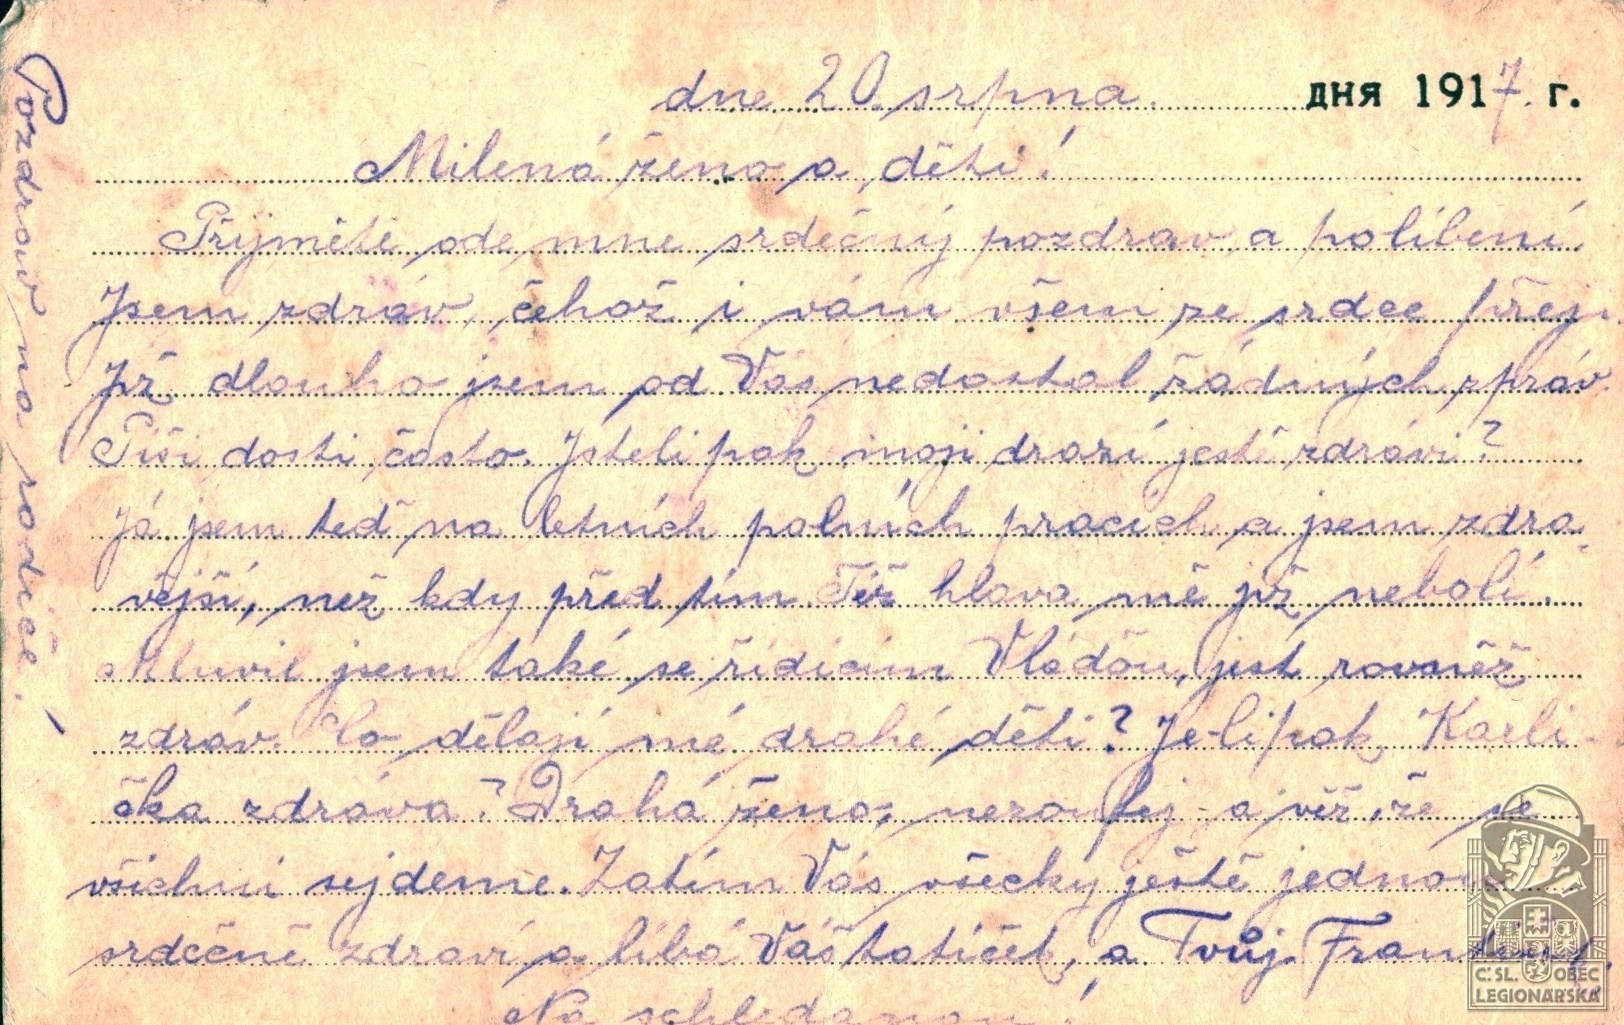 dne 20. srpna. дня 1917. г.
Milená ženo a děti!
Přijměte ode mne srdečný pozdrav a políbení.
Jsem zdráv, čehož i vám všem ze srdce přeji.
Již dlouho jsem od Vás nedostal žádných zpráv.
Píši dosti často. Jstelipak moji drazí jestě zdrávi?
Já jsem teď na letních polních pracích a jsem zdra-
vější, než kdy před tím. Též hlava mě již nebolí.
Mluvil jsem také se řídícím Vláďou, jest rovněž
zdráv. Co dělají mé drahé děti? Je-lipak Karli-
čka zdráva? Drahá ženo, nezoufej a věř, že se
všichni sejdeme. Zatím Vás všecky ještě jednou
srdečně zdraví a líbá Váš tatíček, a Tvůj František.
Na schledanou!
Pozdrav na rodiče!
Č. SL. OBEC
LEGIONÁŘSKÁ